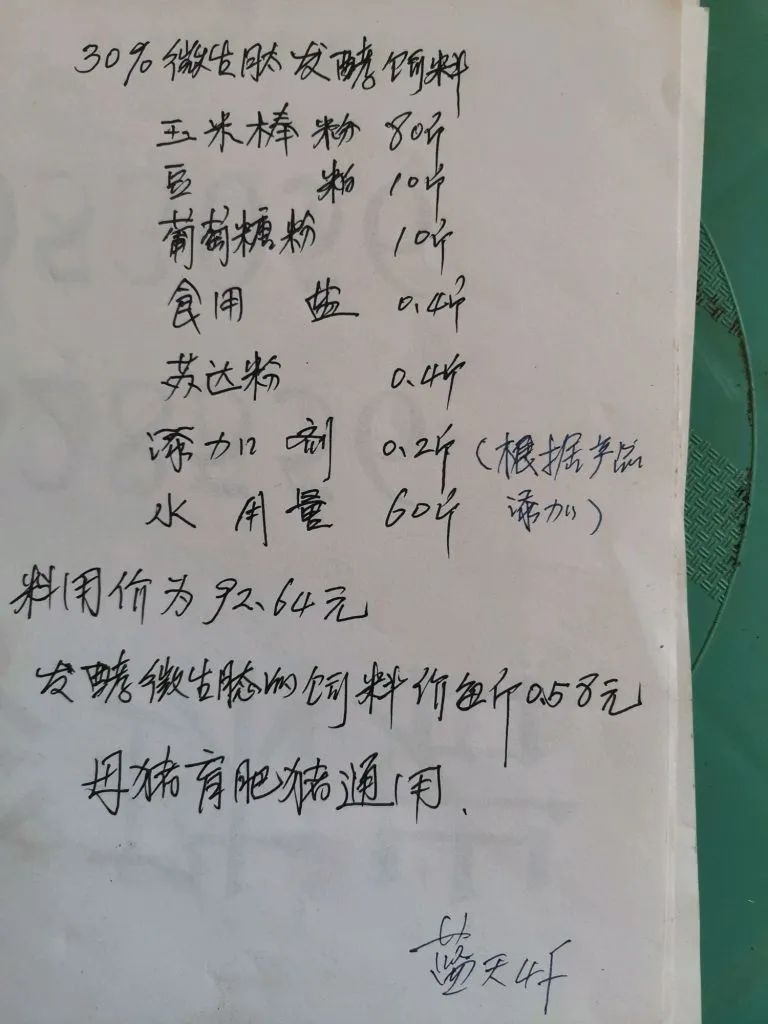 30% 微生态发酵饲料
玉米棒粉 80斤
豆粕 10斤
葡萄糖粉 10斤
食用盐 0.4斤
苏达粉 0.4斤
添加剂 0.2斤 (根据产品
水用量 60斤 添加)
料用价为 92.64元
发酵微生态的饲料价每斤0.58元
母猪育肥猪通用.